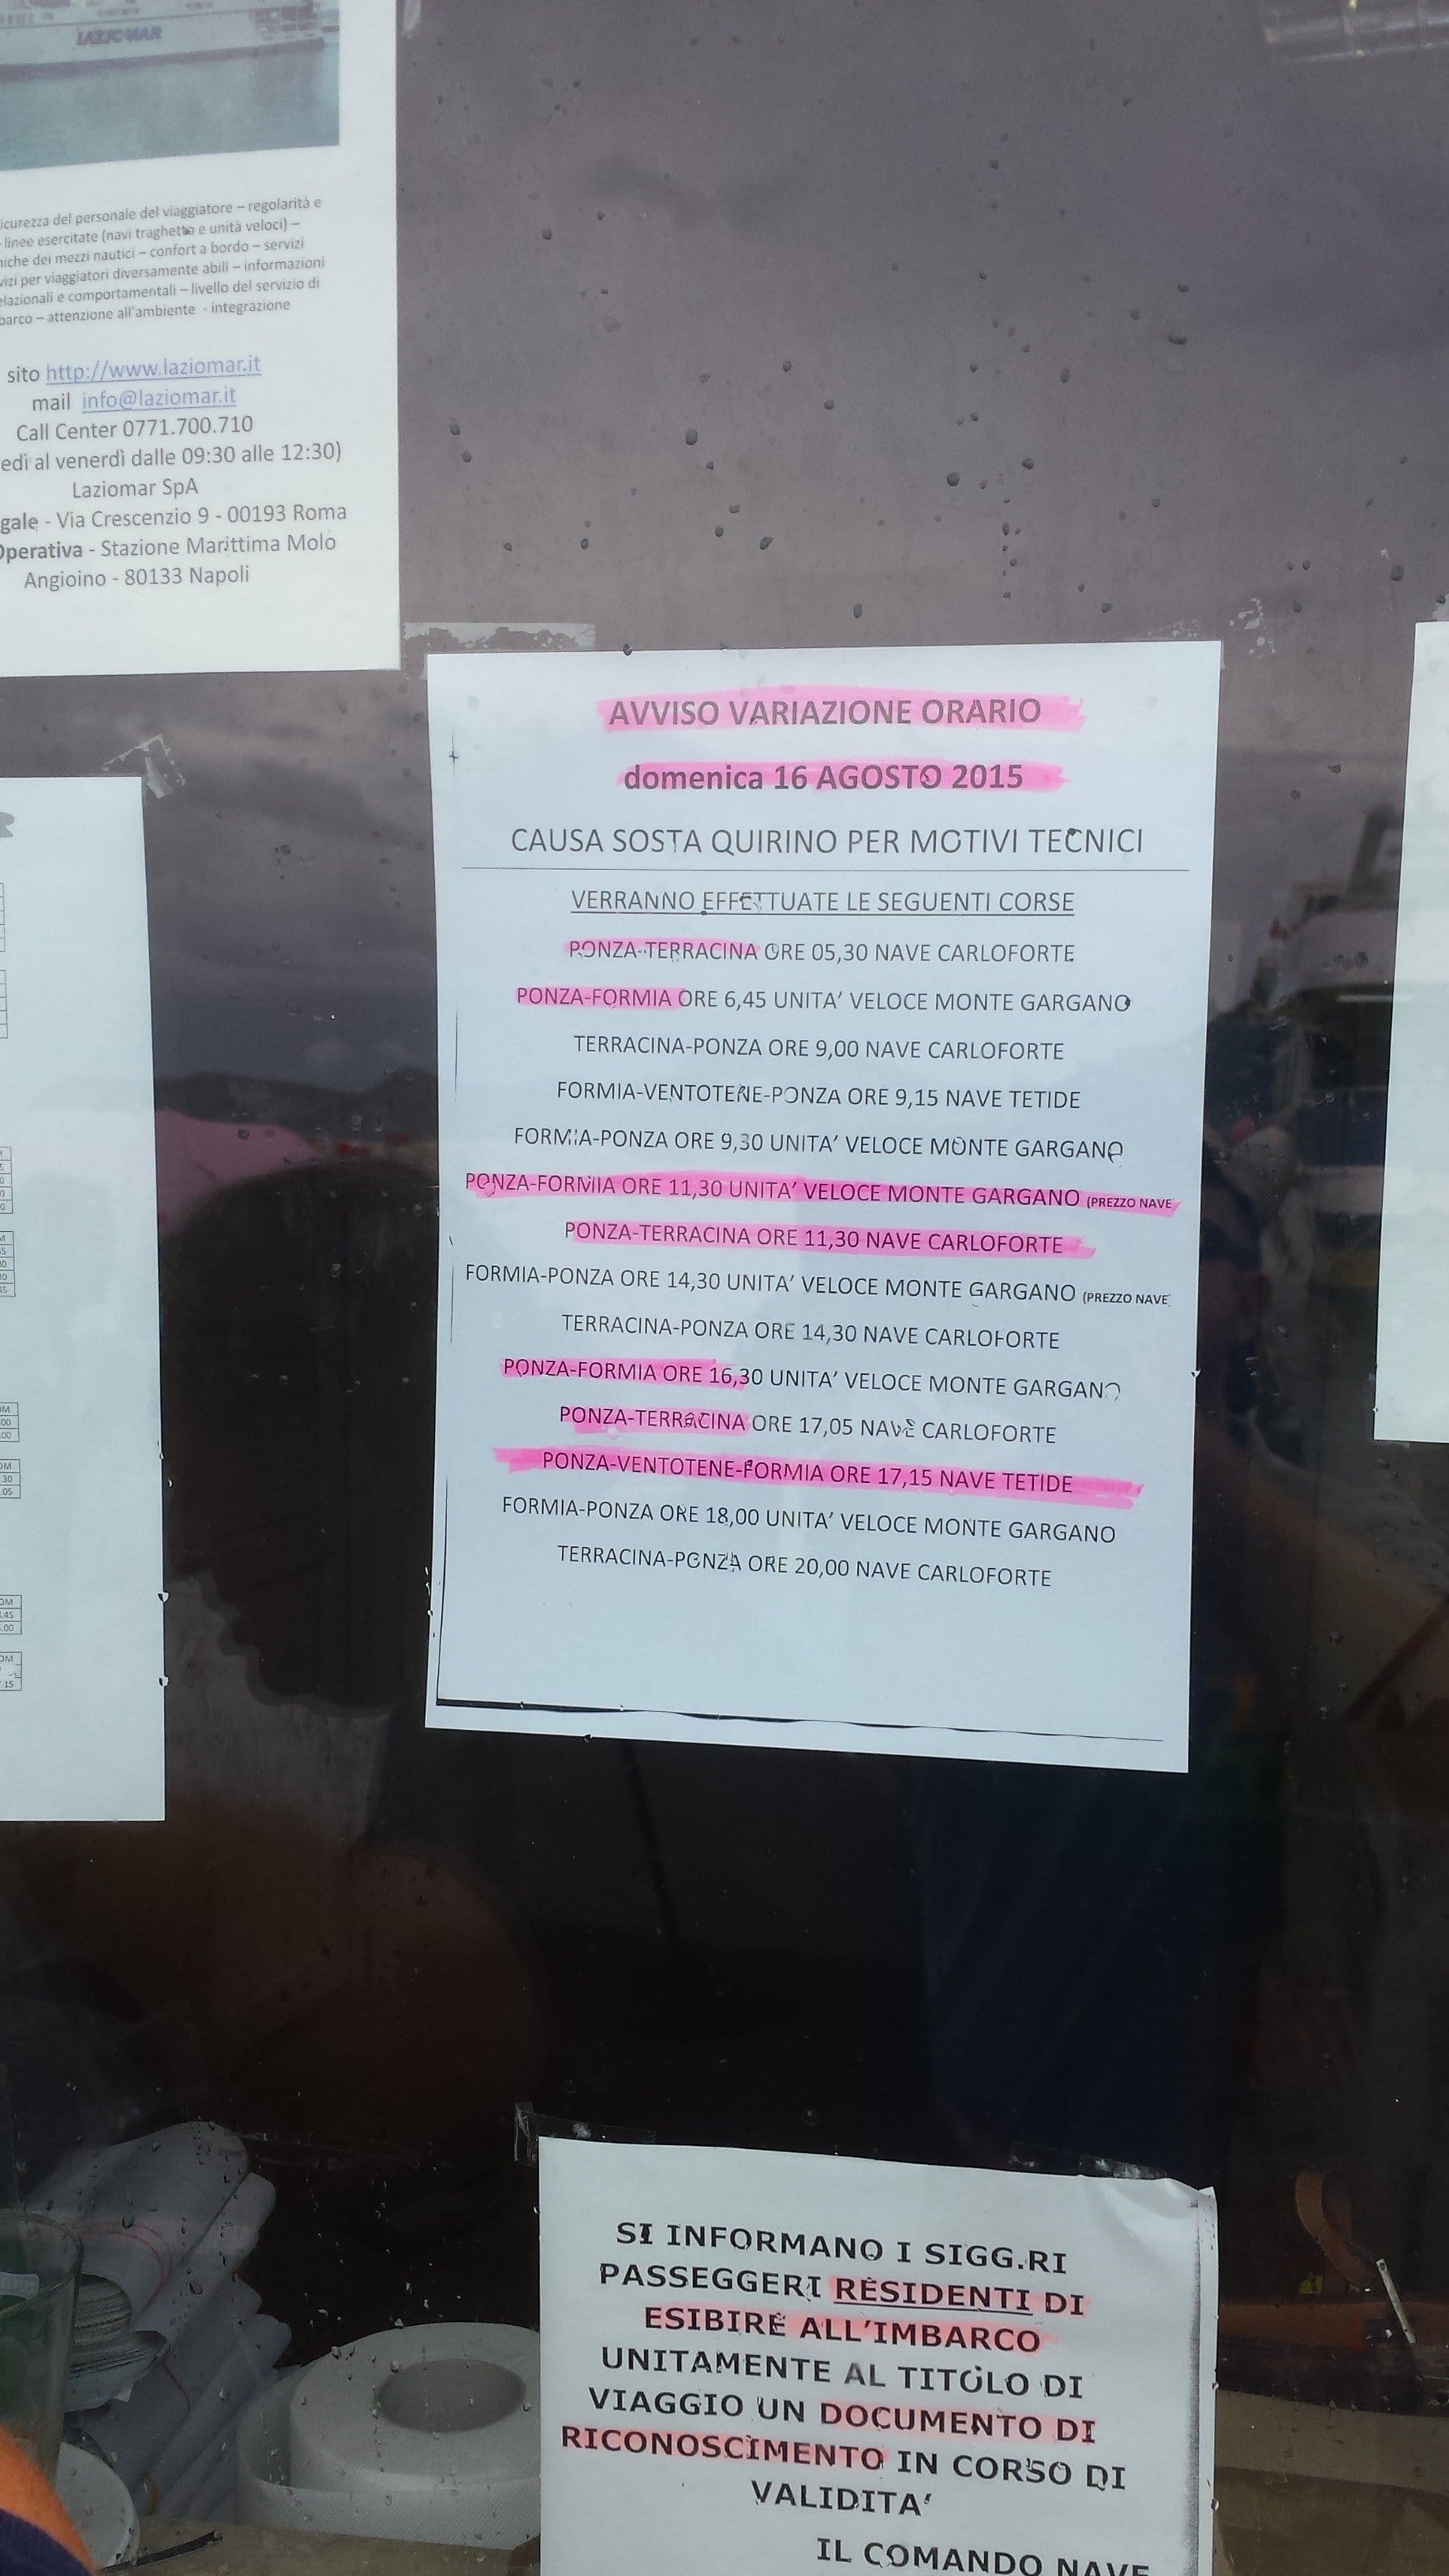 LAZIOMAR
icurezza del personale del viaggiatore – regolarità e
linee esercitate (navi traghetto e unità veloci) –
niche dei mezzi nautici – confort a bordo – servizi
vizi per viaggiatori diversamente abili – informazioni
elazionali e comportamentali – livello del servizio di
barco – attenzione all'ambiente - integrazione
sito http://www.laziomar.it
mail info@laziomar.it
Call Center 0771.700.710
edì al venerdì dalle 09:30 alle 12:30)
Laziomar SpA
gale - Via Crescenzio 9 - 00193 Roma
Operativa - Stazione Marittima Molo
Angioino - 80133 Napoli
AVVISO VARIAZIONE ORARIO
domenica 16 AGOSTO 2015
CAUSA SOSTA QUIRINO PER MOTIVI TECNICI
VERRANNO EFFETTUATE LE SEGUENTI CORSE
PONZA-TERRACINA ORE 05,30 NAVE CARLOFORTE
PONZA-FORMIA ORE 6,45 UNITA' VELOCE MONTE GARGANO
TERRACINA-PONZA ORE 9,00 NAVE CARLOFORTE
FORMIA-VENTOTENE-PONZA ORE 9,15 NAVE TETIDE
FORMIA-PONZA ORE 9,30 UNITA' VELOCE MONTE GARGANO
PONZA-FORMIA ORE 11,30 UNITA' VELOCE MONTE GARGANO (PREZZO NAVE
PONZA-TERRACINA ORE 11,30 NAVE CARLOFORTE
FORMIA-PONZA ORE 14,30 UNITA' VELOCE MONTE GARGANO (PREZZO NAVE
TERRACINA-PONZA ORE 14,30 NAVE CARLOFORTE
PONZA-FORMIA ORE 16,30 UNITA' VELOCE MONTE GARGANO
PONZA-TERRACINA ORE 17,05 NAVE CARLOFORTE
PONZA-VENTOTENE-FORMIA ORE 17,15 NAVE TETIDE
FORMIA-PONZA ORE 18,00 UNITA' VELOCE MONTE GARGANO
TERRACINA-PONZA ORE 20,00 NAVE CARLOFORTE
SI INFORMANO I SIGG.RI
PASSEGGERI RESIDENTI DI
ESIBIRE ALL'IMBARCO
UNITAMENTE AL TITOLO DI
VIAGGIO UN DOCUMENTO DI
RICONOSCIMENTO IN CORSO DI
VALIDITA'
IL COMANDO NAVE